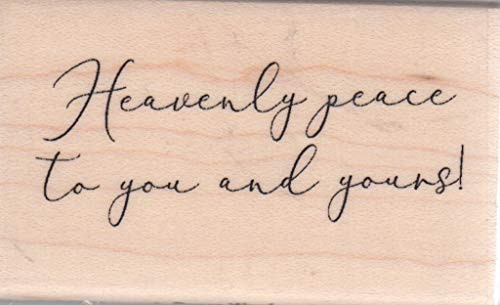 Heavenly peace
to you and yours!